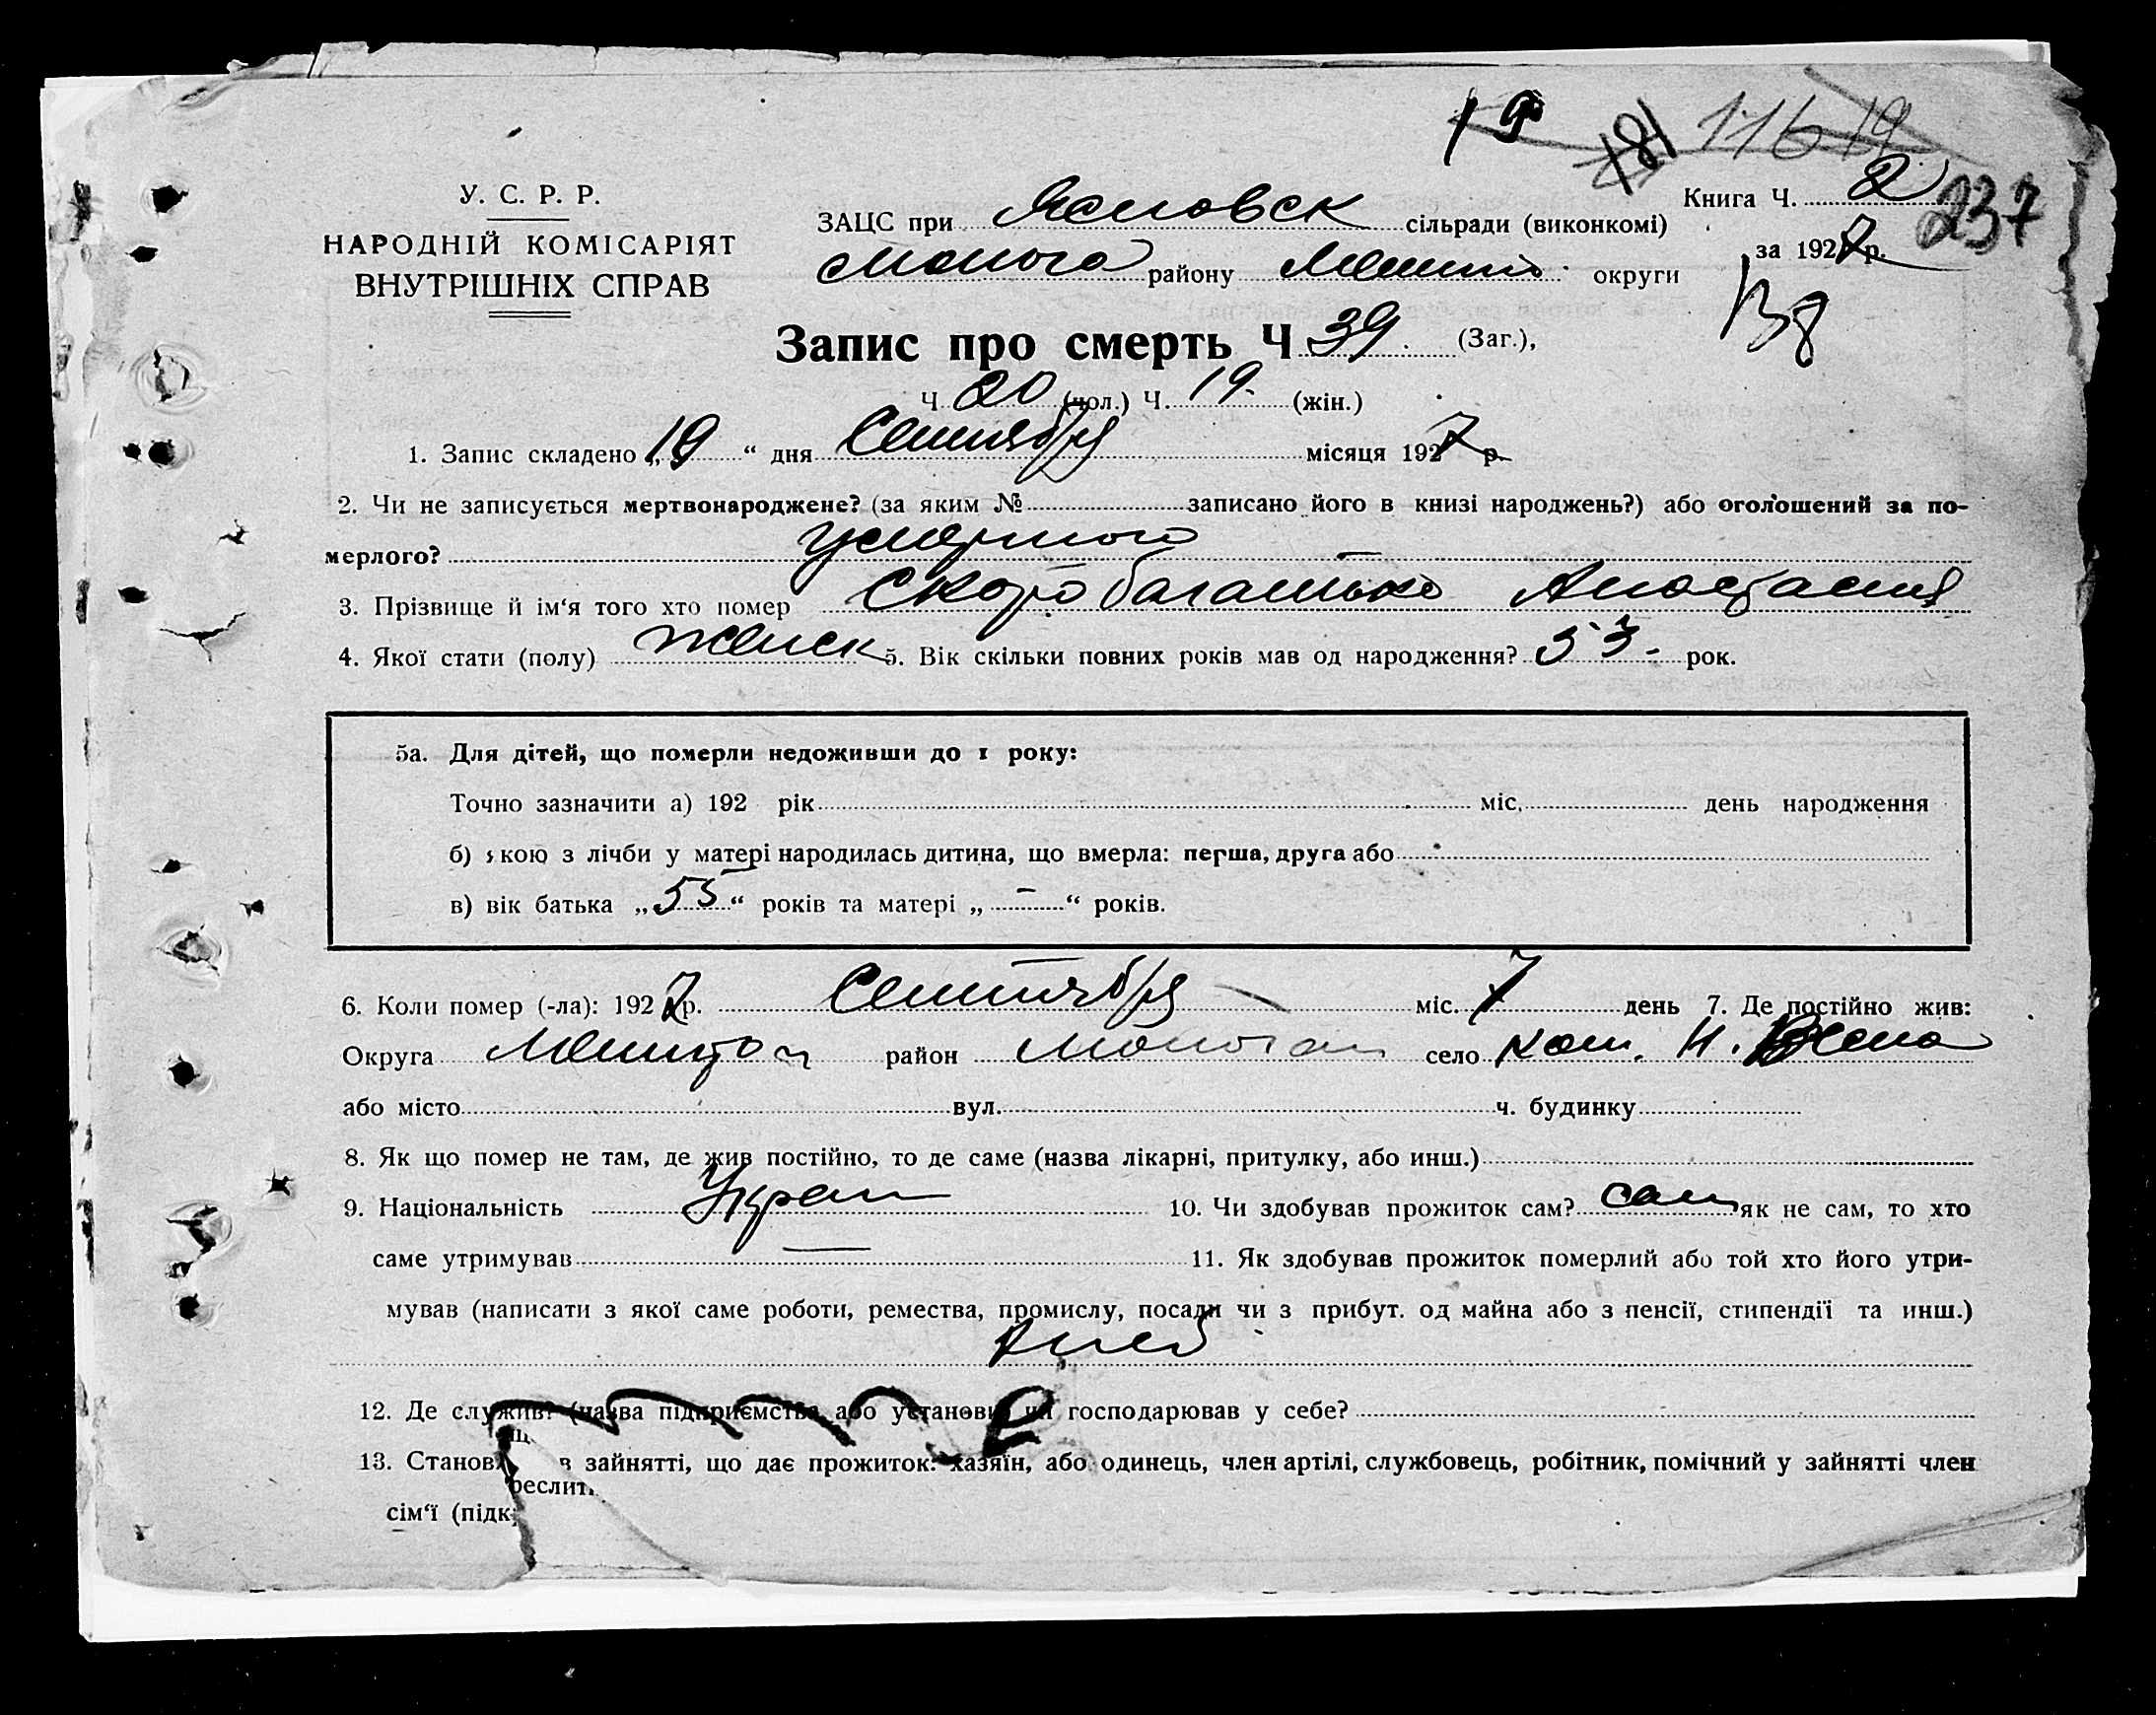 19 181 116 19
У. С. Р. Р.
НАРОДНІЙ КОМІСАРІЯТ
ВНУТРІШНІХ СПРАВ
Книга Ч. 2
237
ЗАЦС при сільради (виконкомі)
за 1927 р.
району округи
138
Запис про смерть Ч 39. (Заг.),
Ч. 20 (чол.) Ч. 19. (жін.)
1. Запис складено „19“ дня Сентября місяця 1927 р.
2. Чи не записується мертвонароджене? (за яким № записано його в книзі народжень?) або оголошений за по-
мерлого? умершого
3. Прізвище й ім‘я того хто помер Скоробагатько Анастасия
4. Якої стати (полу) женск 5. Вік скільки повних років мав од народження? 53 - рок.
5а. Для дітей, що померли недоживши до 1 року:
Точно зазначити а) 192 рік міс. день народження
б) якою з лічби у матері народилась дитина, що вмерла: перша, друга або
в) вік батька „55“ років та матері „ — “ років.
6. Коли помер (-ла): 1927 р. Сентября міс. 7 день 7. Де постійно жив:
Округа район село Н.
або місто вул. ч. будинку
8. Як що помер не там, де жив постійно, то де саме (назва лікарні, притулку, або инш.)
9. Національність Украин 10. Чи здобував прожиток сам? сам як не сам, то хто
саме утримував — 11. Як здобував прожиток померлий або той хто його утри-
мував (написати з якої саме роботи, ремества, промислу, посади чи з прибут. од майна або з пенсії, стипендії та инш.)
12. Де служив? (назва підприємства або установи) чи господарював у себе?
13. Станов в зайнятті, що дає прожиток: хазяїн, або одинець, член артілі, службовець, робітник, помічний у зайнятті член
сім‘ї (підк